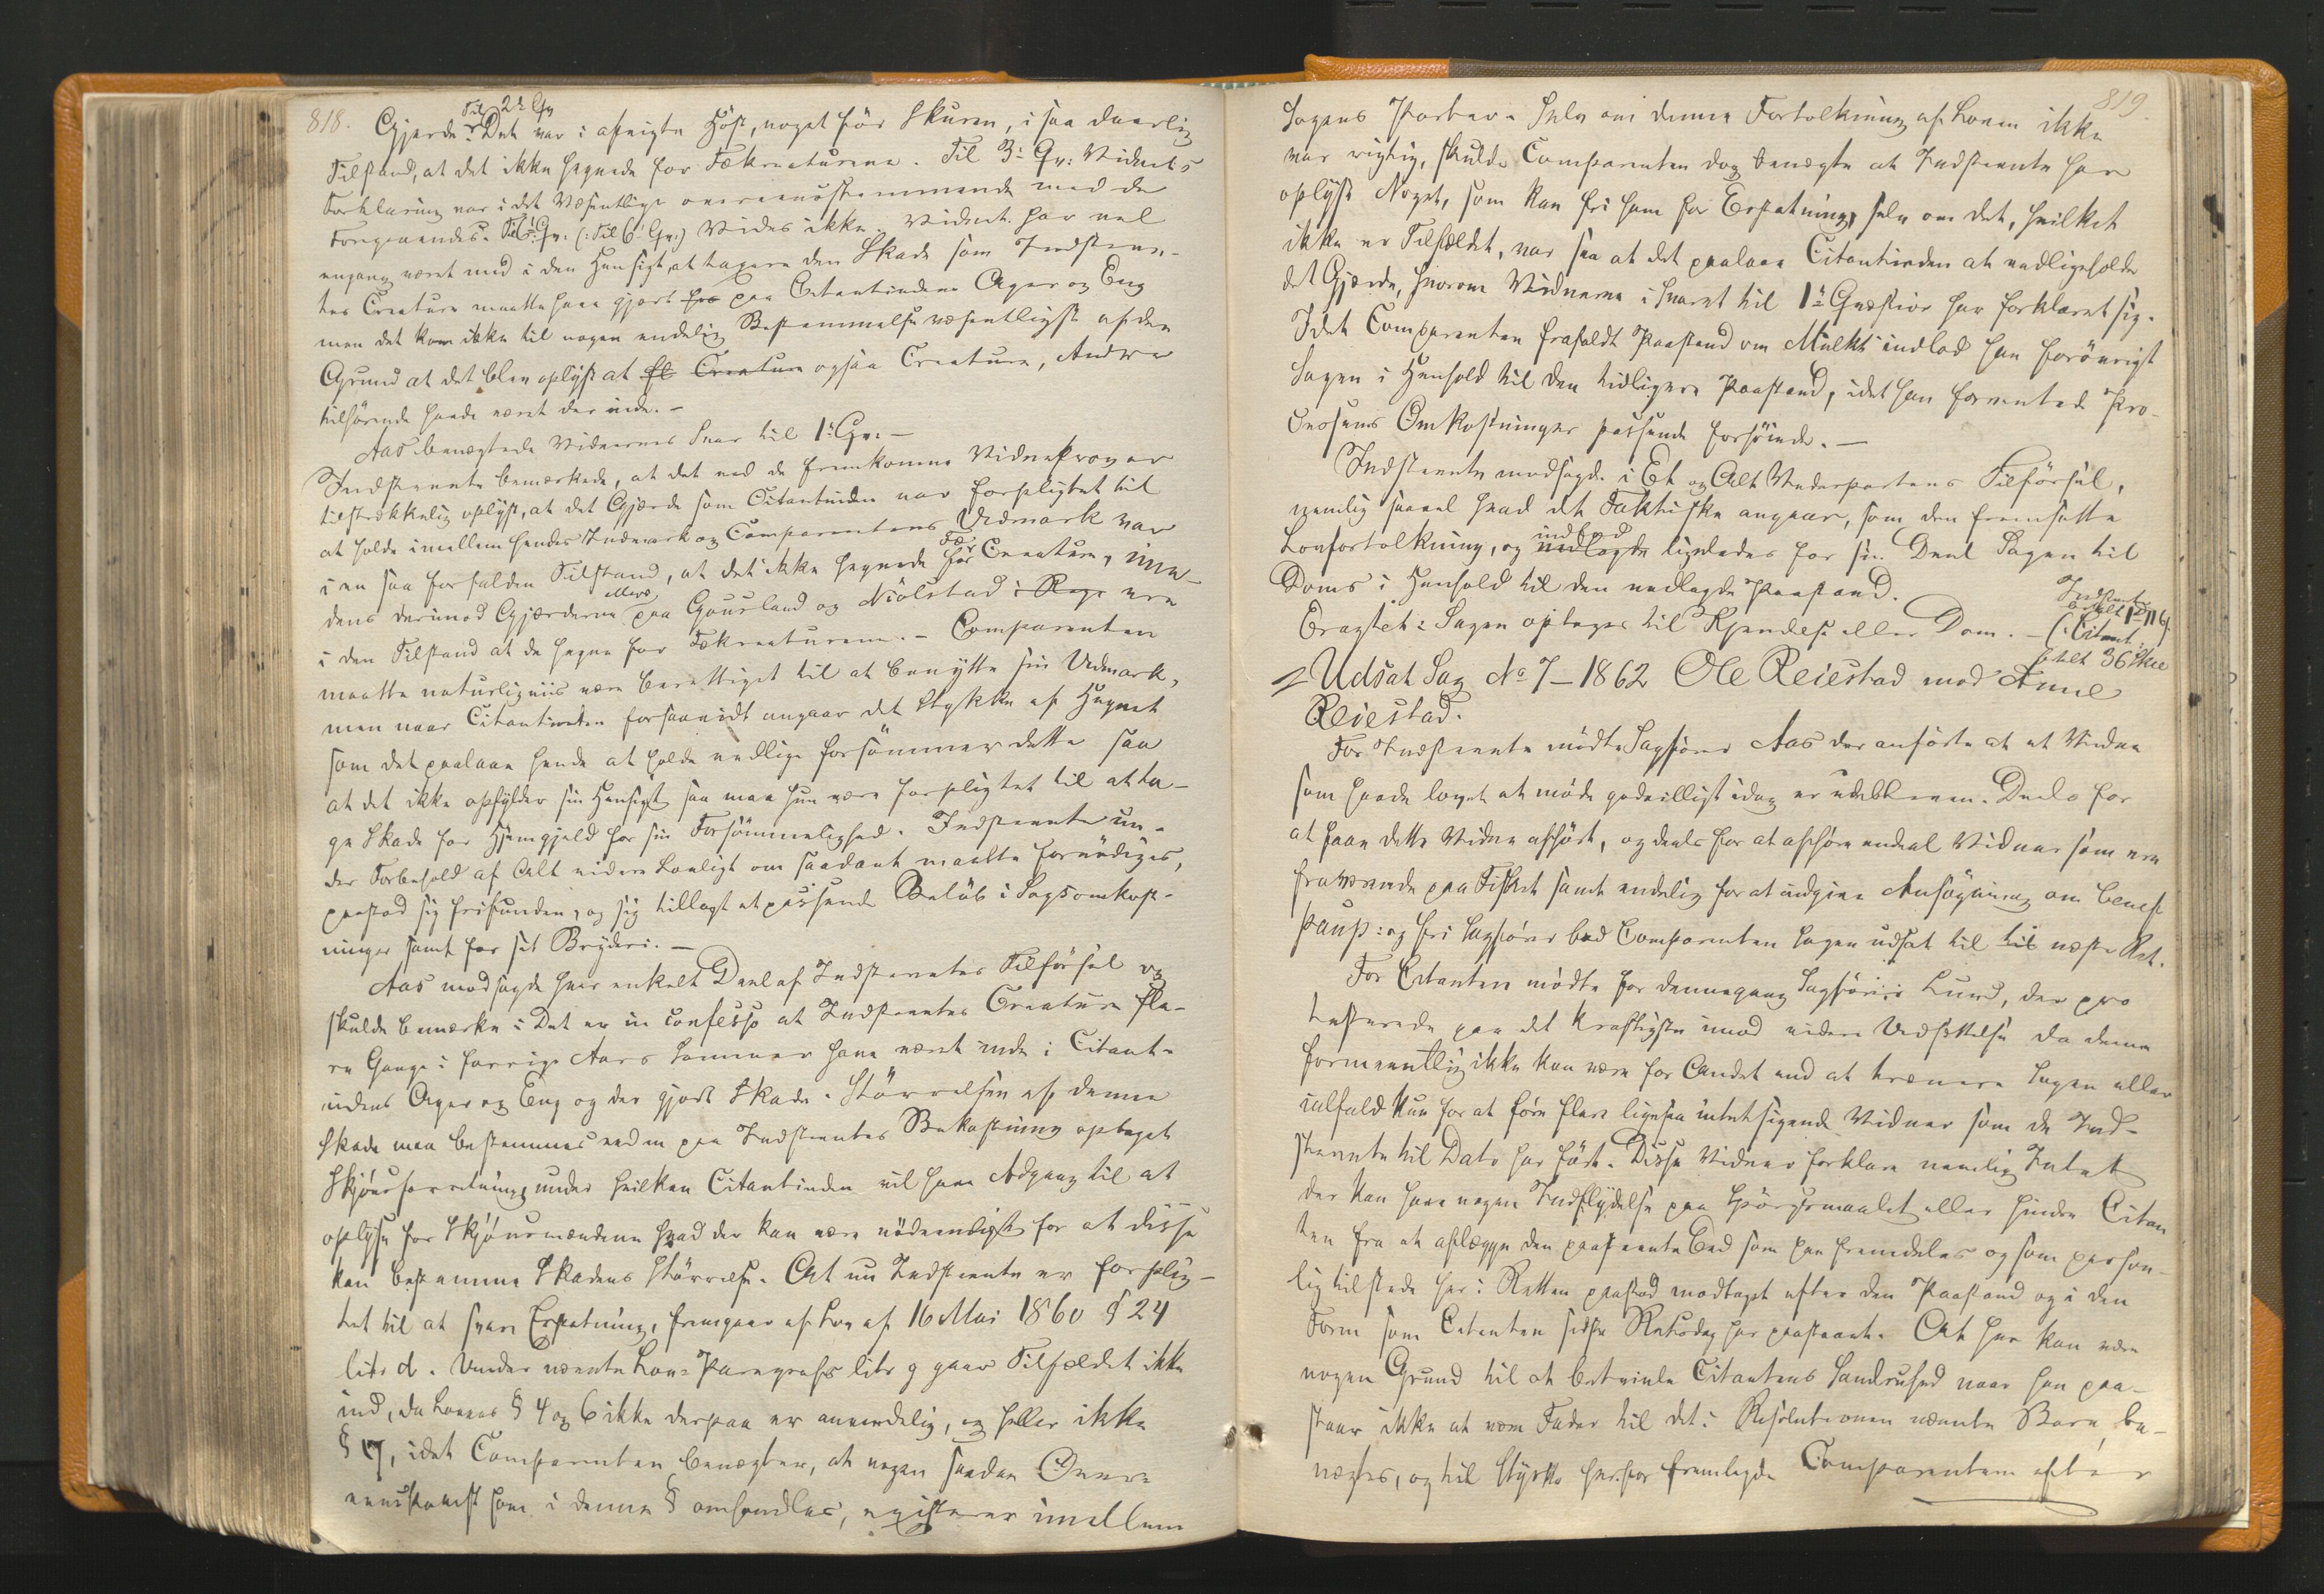 818.
Gjerde? Til 2t Qv Det var i afvigte Høst, noget før Skuren, i saa daarlig
Tilstand, at det ikke hegnede for Fækreaturene. Til 3: Qv: Vidnets
Forklaring var i det Væsentlige overeensstemmende med de
Foregaaendes. Til Qv. (: Til 6' Qv:) Vides ikke. Vidnet har vel
engang været med i den Hensigt, at taxere den Skade som Indstevn-
tes Creature maatte have gjort paa Citantindens Ager og Eng
men det kom ikke til nogen endelig Bestemmelse væsentligst af den
Grund at det blev oplyst at fl Creature ogsaa Creature, Andre
tilhørende havde været der inde. –
Aas benægtede Vidnernes Svar til 1t Qv. –
Indstevnte bemærkede, at det ved de fremkomne Vidneprov er
tilstrækkelig oplyst, at det Gjerde som Citantinden var forpligtet til
at holde imellem hendes Indmark og Comparentens Udmark var
i en saa forfalden Tilstand, at det ikke hegnede for Fær Creature, ime-
dens derimod Gjærderne ellers paa Gousland og Niölstad i Rege ere
i den Tilstand at de hegne for Fækreaturene. – Comparenten
maatte naturligviis være berettiget til at benytte sin Udmark,
men naar Citantinden forsaavidt angaar det Stykke af Hegnet
som det paalaae hende at holde vedlige forsømmer dette saa
at det ikke opfylder sin Hensigt saa maa hun være forpligtet til at ta-
ge Skade for Hjemgjeld for sin Forsømmelighed. Indstevnte un-
der Forbehold af Alt videre Lovligt om saadant maatte fornødiges,
paastod sig frifunden, og sig tillagt et passende Beløb i Sagsomkost-
ninger samt for sit Bryderi. –
Aas modsagde hver enkelt Deel af Indstevntes Tilførsel og
skulde bemærke: Det er in confesso at Indstevntes Creature fle-
re Gange i forrige Aars Sommer have været inde i Citant-
indens Ager og Eng og der gjort Skade. Størrelsen af denne
Skade maa bestemmes ved en paa Indstevntes Bekostning optaget
Skjønsforretning, under hvilken Citantinden vil have Adgang til at
oplyse for Skjønsmændene hvad der kan være nødvendigt for at disse
kan bestemme Skadens Størrelse. At nu Indstevnte er forplig-
tet til at svare Erstatning, fremgaaer af Lov af 16 Mai 1860 § 24
litr d. Under nævnte Lov-Paragrafs litr g gaar Tilfældet ikke
ind, da Lovens § 4 og 6 ikke derpaa er anvendelig, og heller ikke
§ 17, idet Comparenten benægter, at nogen saadan Overe
eenskomst som i denne § omhandles, existerer imellem
819.
Sagens Parter. Selv om denne Fortolkning af Loven ikke
var rigtig, skulde Comparenten dog benægte at Indstevnte har
oplyst Noget, som kan fri ham for Erstatning, selv om det, hvilket
ikke er Tilfældet, var saa at det paalaae Citantinden at vedligeholde
det Gjerde, hvorom Vidnerne i Svaret til 1t Qvæstion har forklaret sig.
Idet Comparenten frafaldt Paastand om Mulkt indlod han forøvrigt
Sagen i Henhold til den tidligere Paastand, idet han formente de Pro-
cessens Omkostninger passende forhøiede. –
Indstevnte modsagde i Et og Alt Vederpartens Tilførsel,
nemlig saavel hvad det Faktiske angaaer, som den fremsatte
Lovfortolkning, og indlod nedlagde ligeledes for sin Deel Sagen til
Doms i Henhold til den nedlagde Paastand.
Eragtet: Sagen optages til Kjendelse eller Dom. –
Indstevnte
betalt 1 # 116
(: Citant.
betalt 36 Skil
Udsat Sag No 7 – 1862 Ole Reiestad mod Anne
Reiestad.
For Indstevnte mødte Sagfører Aas der anførte at et Vidne
som havde lovet at møde godvilligt idag er udebleven. Deels for
at faae dette Vidne afhørt, og deels for at afhøre endeel Vidner som ere
fraværende paa Fiskeri samt endelig for at indgive Ansøgning om benef
paup: og fri Sagfører bad Comparenten Sagen udsat til til næste Ret.
For Citanten mødte for dennegang Sagfører Lund, der pro
testerede paa det kraftigste imod videre Udsættelse da denne
formeentlig ikke kan være for Andet end at trænere Sagen eller
ialfald kun for at føre flere ligesaa intetsigende Vidner som de Ind-
stevnte til Dato har ført. Disse Vidner forklare nemlig Intet
der kan have nogen Indflydelse paa Spørgsmaalet eller hindre Citan
ten fra at aflægge den paastevnte Eed som han fremdeles og som person-
lig tilstede her i Retten paastod modtaget efter den Paastand og i den
Form som Citanten sidste Retsdag har paastaaet. At her kan være
nogen Grund til at betvivle Citantens Sandruhed naar han paa-
staar ikke at være Fader til det i Resolutionen nævnte Barn, be-
nægtes, og til Støtte herfor fremlagde Comparenten efter